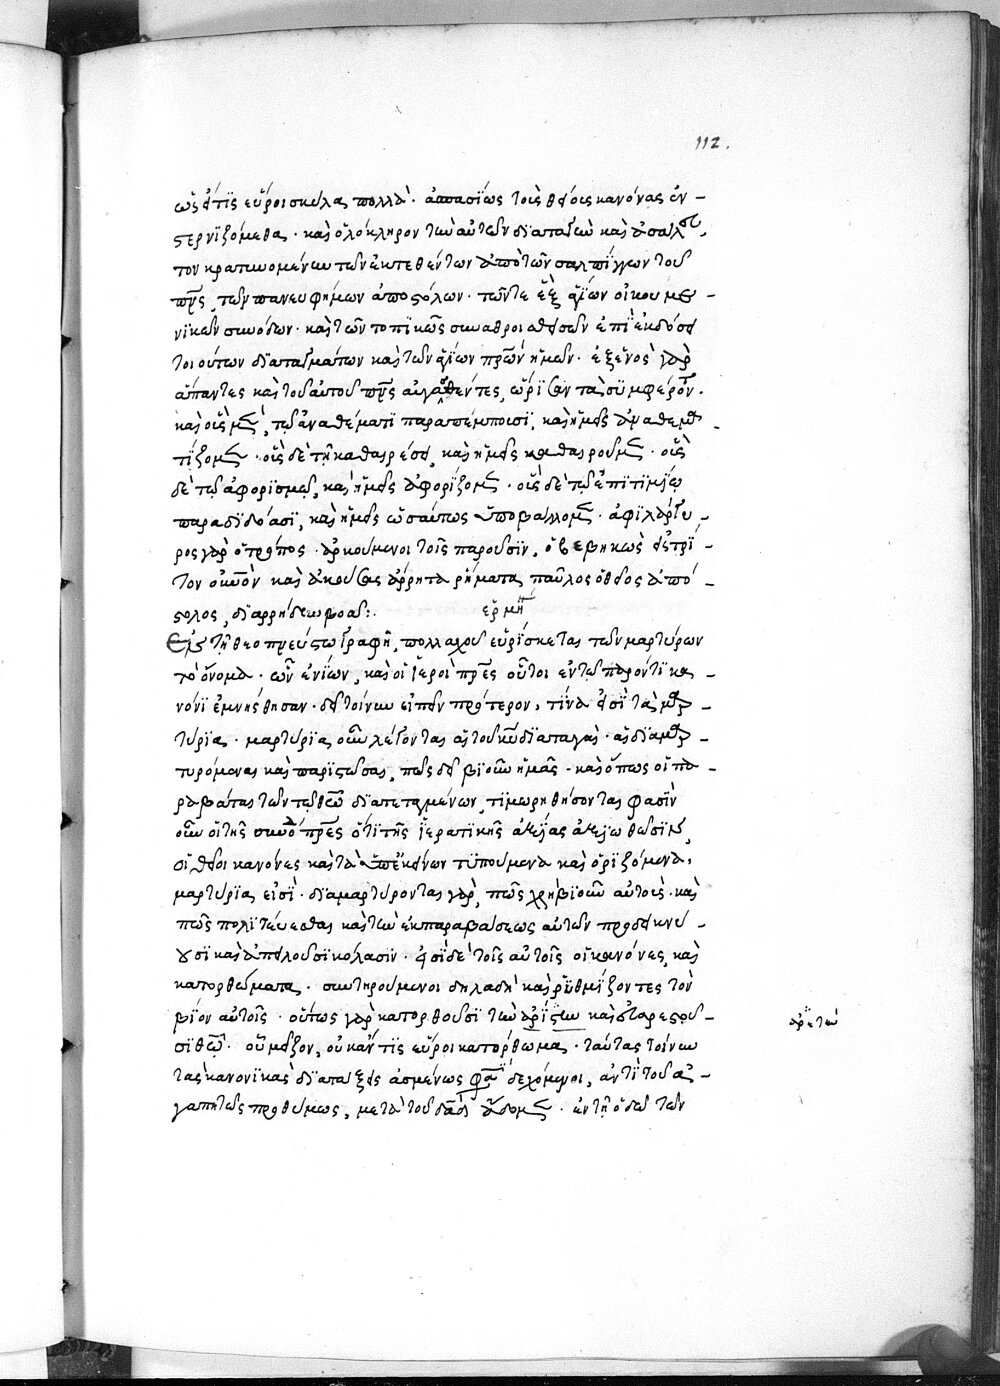 112.
ὡς εἴ τις εὕροι σκῦλα πολλά· ἀσπασίως τοὺς θείους κανόνας ἐν-
στερνιζόμεθα· καὶ ὁλόκληρον τὴν αὐτῶν διαταγὴν καὶ ἀσάλευ-
τον κρατυνομένην τῶν ἐκτεθέντων ἀπὸ τῶν σαλπίγγων τοῦ
πνς, τῶν πανευφήμων ἀποστόλων· τῶν τε ἓξ ἁγίων οἰκουμε-
νικῶν συνόδων· καὶ τῶν τοπικῶς συναθροισθεισῶν ἐπὶ ἐκδόσει
τοιούτων διαταγμάτων καὶ τῶν ἁγίων πρῶν ἡμῶν· ἐξ ἑνὸς γὰρ
ἅπαντες καὶ τοῦ αὐτοῦ πνς αὐγασθέντες, ὥρισαν τὰ συμφέροντα.
καὶ οὓς μὲν, τῷ ἀναθέματι παραπέμπουσι, καὶ ἡμεῖς ἀναθεμα-
τίζομεν· οὓς δὲ τῇ καθαιρέσει, καὶ ἡμεῖς καθαιροῦμεν· οὓς
δὲ τῷ ἀφορισμῷ, καὶ ἡμεῖς ἀφορίζομεν· οὓς δὲ τῷ ἐπιτιμίῳ
παραδιδόασι, καὶ ἡμεῖς ὡσαύτως ὑποβάλλομεν· ἀφιλάργυ-
ρος γὰρ ὁ τρόπος· ἀρκούμενοι τοῖς παροῦσιν, ὁ βεβηκὼς εἰς τρί-
τον οὐνὸν καὶ ἀκούσας ἄρρητα ρήματα παῦλος ὁ θεῖος ἀπό-
στολος, διαρρήδην βοᾷ:. ἑρμη
Ἐν τῇ θεοπνεύστῳ γραφῇ, πολλαχοῦ εὑρίσκεται τῶν μαρτύρων
τὸ ὄνομα· ὧν ἐνίων, καὶ οἱ ἱεροὶ πρες οὗτοι ἐν τῷ παρόντι κα-
νόνι ἐμνήσθησαν· δεῖ τοίνυν εἰπεῖν πρότερον, τίνα εἰσὶ τὰ μαρ-
τύρια· μαρτύρια οὖν λέγονται αἱ τοῦ κυ διαταγαὶ· αἱ διαμαρ-
τυρόμεναι καὶ παριστῶσαι, πῶς δεῖ βιοῦν ἡμᾶς· καὶ ὅπως οἱ πα-
ραβάται τῶν τῷ θω διατεταγμένων, τιμωρηθήσονται φασὶν
οὖν οἱ τῆς συνόδου πρες ὅτι τῆς ἱερατικῆς ἀξίας ἀξιωθεῖσιν,
οἱ θεῖοι κανόνες καὶ τὰ ὑπ' ἐκείνων τυπούμενα καὶ ὁριζόμενα,
μαρτύρια εἰσὶ· διαμαρτύρονται γὰρ, πῶς χρὴ βιοῦν αὐτοὺς· καὶ
πῶς πολιτεύεσθαι καὶ τὴν ἐκ παραβάσεως αὐτῶν προσδεικνύ-
ουσι καὶ ἀπειλοῦσι κόλασιν· εἰσὶ δὲ τοῖς αὐτοῖς οἱ κανόνες, καὶ
κατορθώματα· συντηρούμενοι δηλαδὴ καὶ ῥυθμίζοντες τὸν
βίον αὐτοῖς· οὕτως γὰρ κατορθοῦσι τὴν ἀρίστην καὶ εὐαρεστοῦ-
σι θω· οὗ μεῖζον, οὐκ ἄν τις εὕροι κατόρθωμα· ταύτας τοίνυν
τὰς κανονικὰς διατάξεις ἀσμένως φασι δεχόμενοι, ἀντὶ τοῦ ἀ-
γαπητῶς προθύμως, μετὰ τοῦ δαδ ᾄδομεν· ἐν τῇ ὁδῷ τῶν
ἀρετὴν